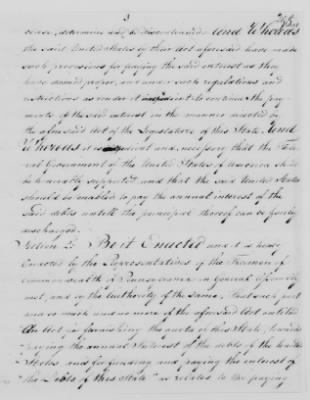 3
cease, determine and be discontinued. And Whereas
the said United States by their Act aforesaid have made
such provisions for paying the said interest as they
have deemed proper, and under such regulations and
restrictions as render it inexpedient to continue the pay-
ments of the said interest in the manner directed in
the aforesaid Act of the Legislature of this State, And
Whereas it is expedient and necessary that the Fede-
ral Government of the United States of America should
be honorably supported, and that the said United States
should be enabled to pay the annual interest of the
said debts until the principal thereof can be fairly
discharged.
Section 2. Be it Enacted and it is hereby
Enacted by the Representatives of the Freemen of
Commonwealth of Pennsylvania in General Assembly
met, and by the Authority of the same, That such part
and so much and no more of the aforesaid Act entitled
An Act for furnishing the quota of this State, towards
paying the annual interest of the debts of the United
States, and for funding and paying the interest of
the Debts of this State" as relates to the paying